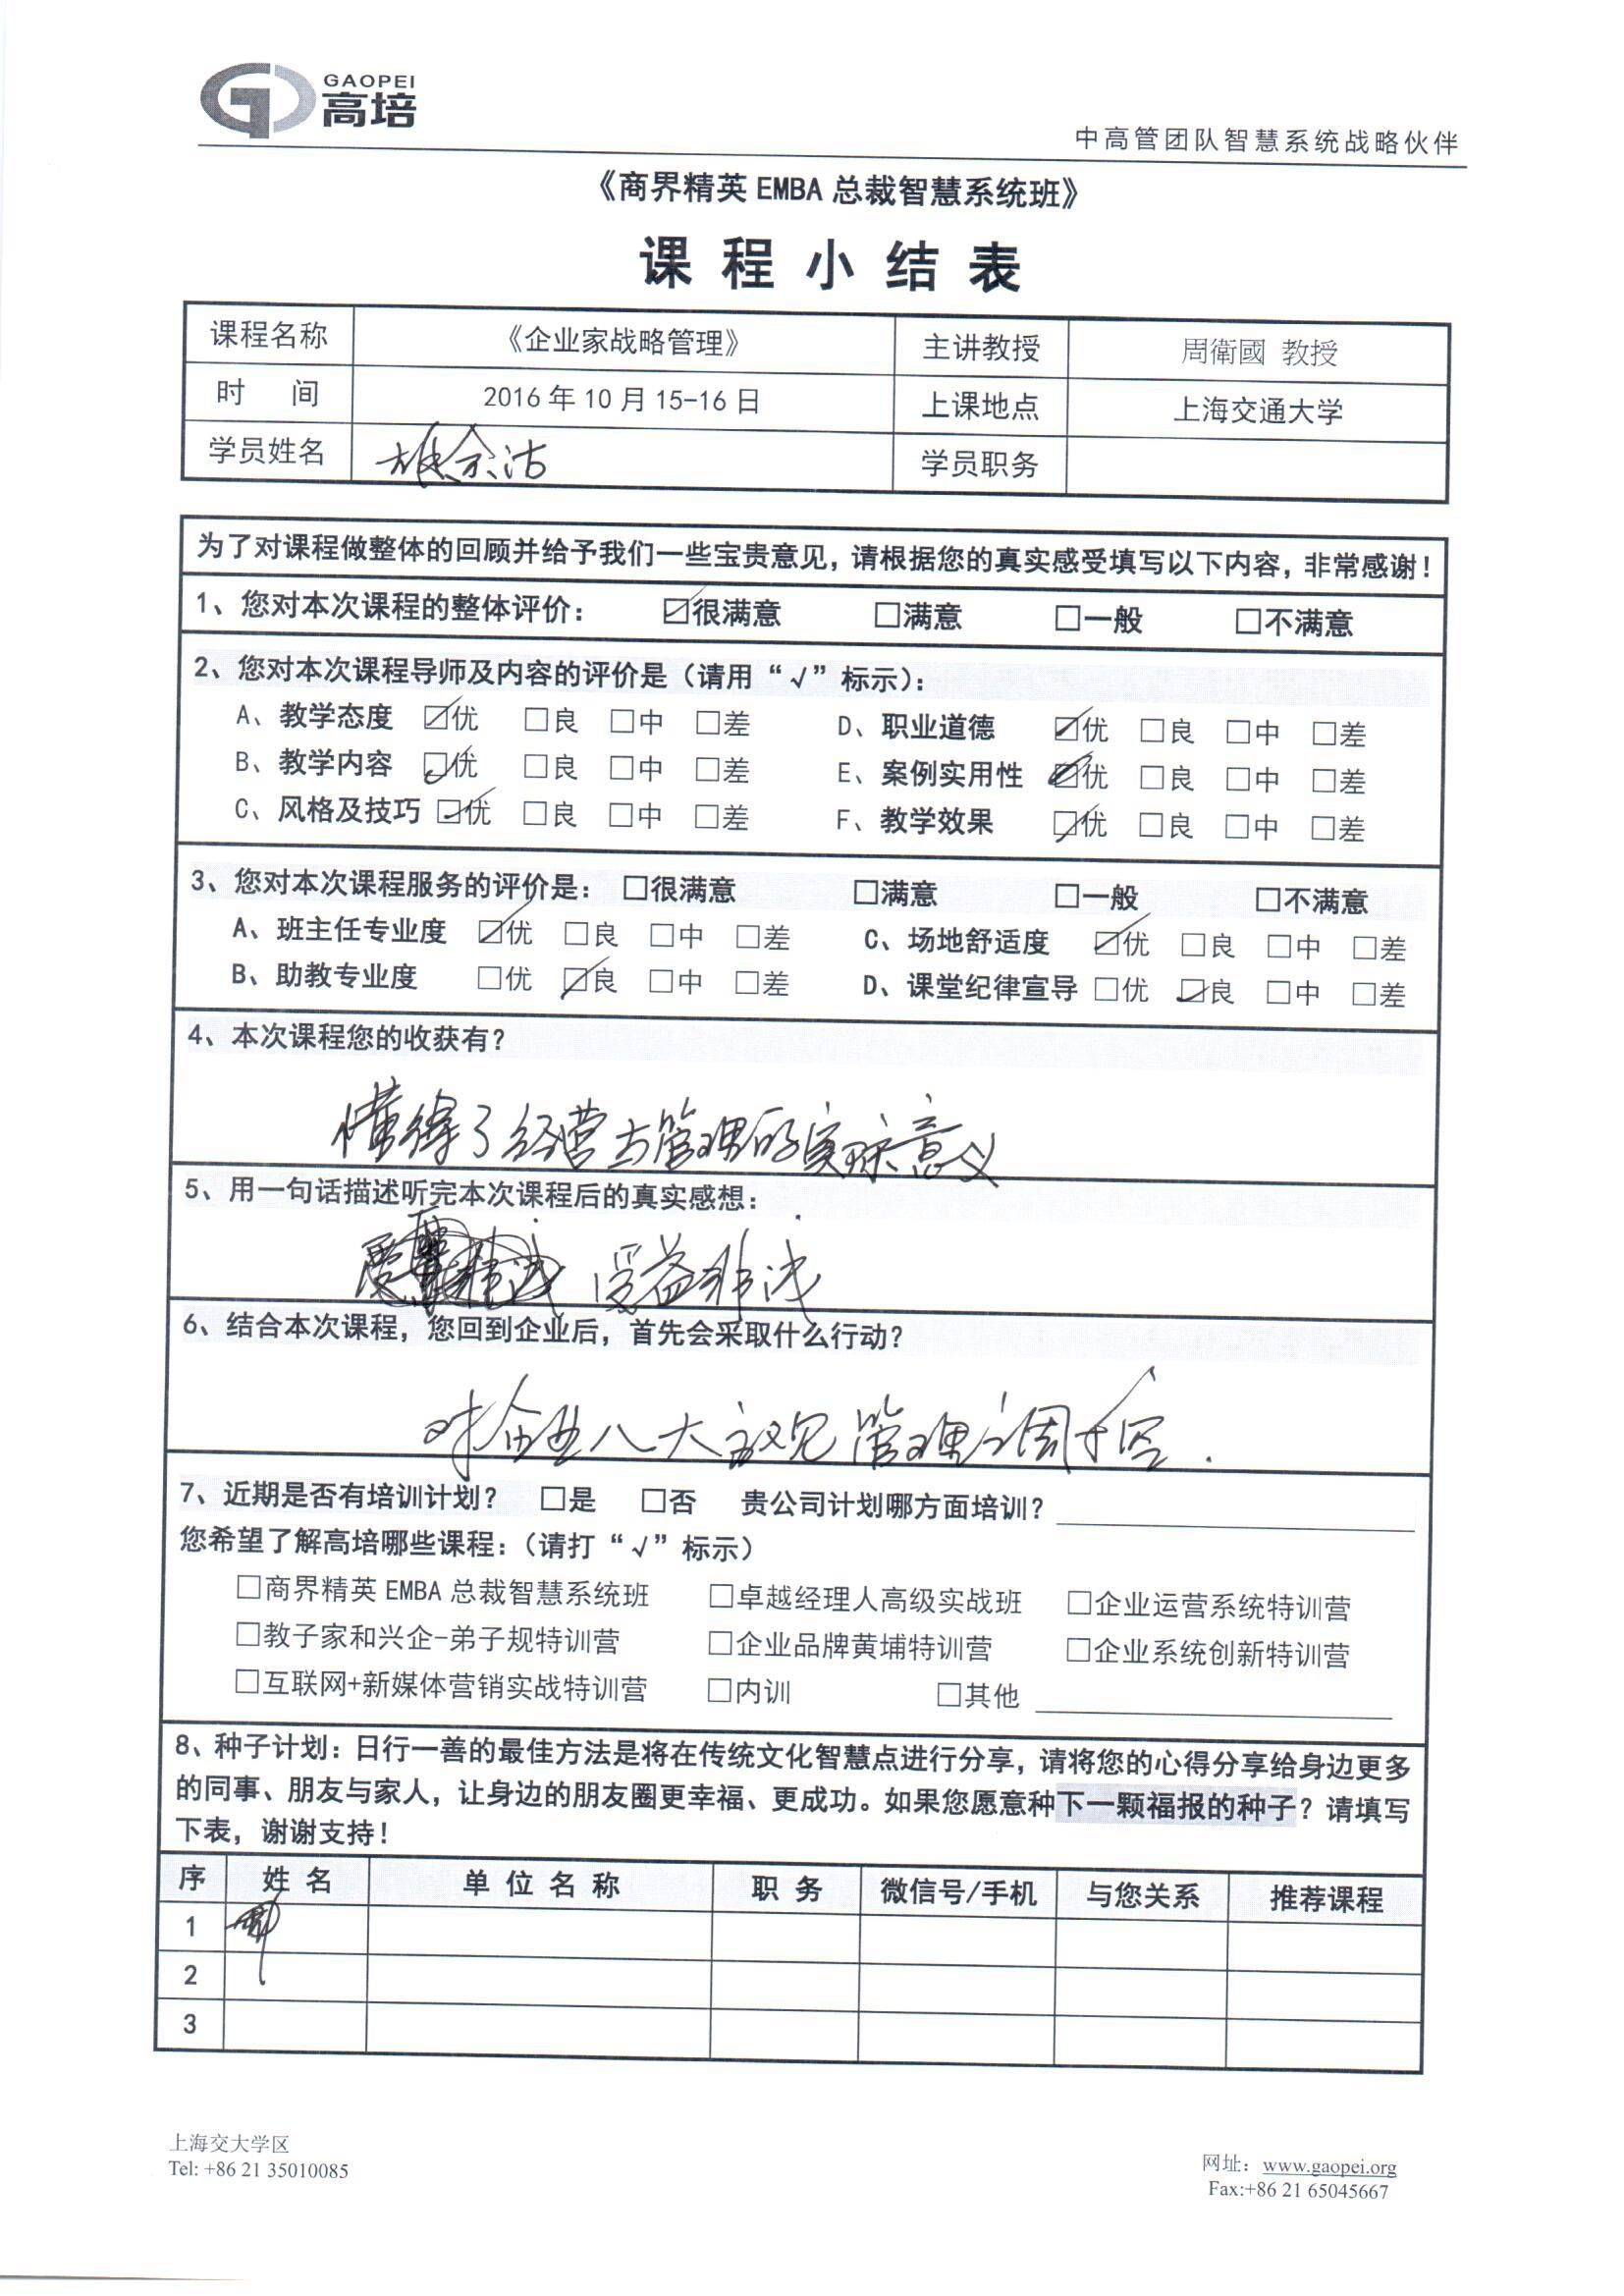 GAOPEI
高培
中高管团队智慧系统战略伙伴
《商界精英 EMBA 总裁智慧系统班》
课程小结表
课程名称 《企业家战略管理》 主讲教授 周衛國 教授
时 间 2016 年 10 月 15-16 日 上课地点 上海交通大学
学员姓名 学员职务
为了对课程做整体的回顾并给予我们一些宝贵意见，请根据您的真实感受填写以下内容，非常感谢！
1、您对本次课程的整体评价： ☑很满意 □满意 □一般 □不满意
2、您对本次课程导师及内容的评价是（请用“√”标示）：
A、教学态度 ☑优 □良 □中 □差 D、职业道德 ☑优 □良 □中 □差
B、教学内容 ☑优 □良 □中 □差 E、案例实用性 ☑优 □良 □中 □差
C、风格及技巧 ☑优 □良 □中 □差 F、教学效果 ☑优 □良 □中 □差
3、您对本次课程服务的评价是： □很满意 □满意 □一般 □不满意
A、班主任专业度 ☑优 □良 □中 □差 C、场地舒适度 ☑优 □良 □中 □差
B、助教专业度 □优 ☑良 □中 □差 D、课堂纪律宣导 □优 ☑良 □中 □差
4、本次课程您的收获有？
懂得了经营与管理的实际意义
5、用一句话描述听完本次课程后的真实感想：
受益非浅
6、结合本次课程，您回到企业后，首先会采取什么行动？
对企业八大 管理
7、近期是否有培训计划？ □是 □否 贵公司计划哪方面培训？
您希望了解高培哪些课程：（请打“√”标示）
□商界精英 EMBA 总裁智慧系统班 □卓越经理人高级实战班 □企业运营系统特训营
□教子家和兴企-弟子规特训营 □企业品牌黄埔特训营 □企业系统创新特训营
□互联网+新媒体营销实战特训营 □内训 □其他
8、种子计划：日行一善的最佳方法是将在传统文化智慧点进行分享，请将您的心得分享给身边更多
的同事、朋友与家人，让身边的朋友圈更幸福、更成功。如果您愿意种下一颗福报的种子？请填写
下表，谢谢支持！
序 姓 名 单 位 名 称 职 务 微信号/手机 与您关系 推荐课程
1
2
3
上海交大学区
Tel: +86 21 35010085
网址：www.gaopei.org
Fax:+86 21 65045667